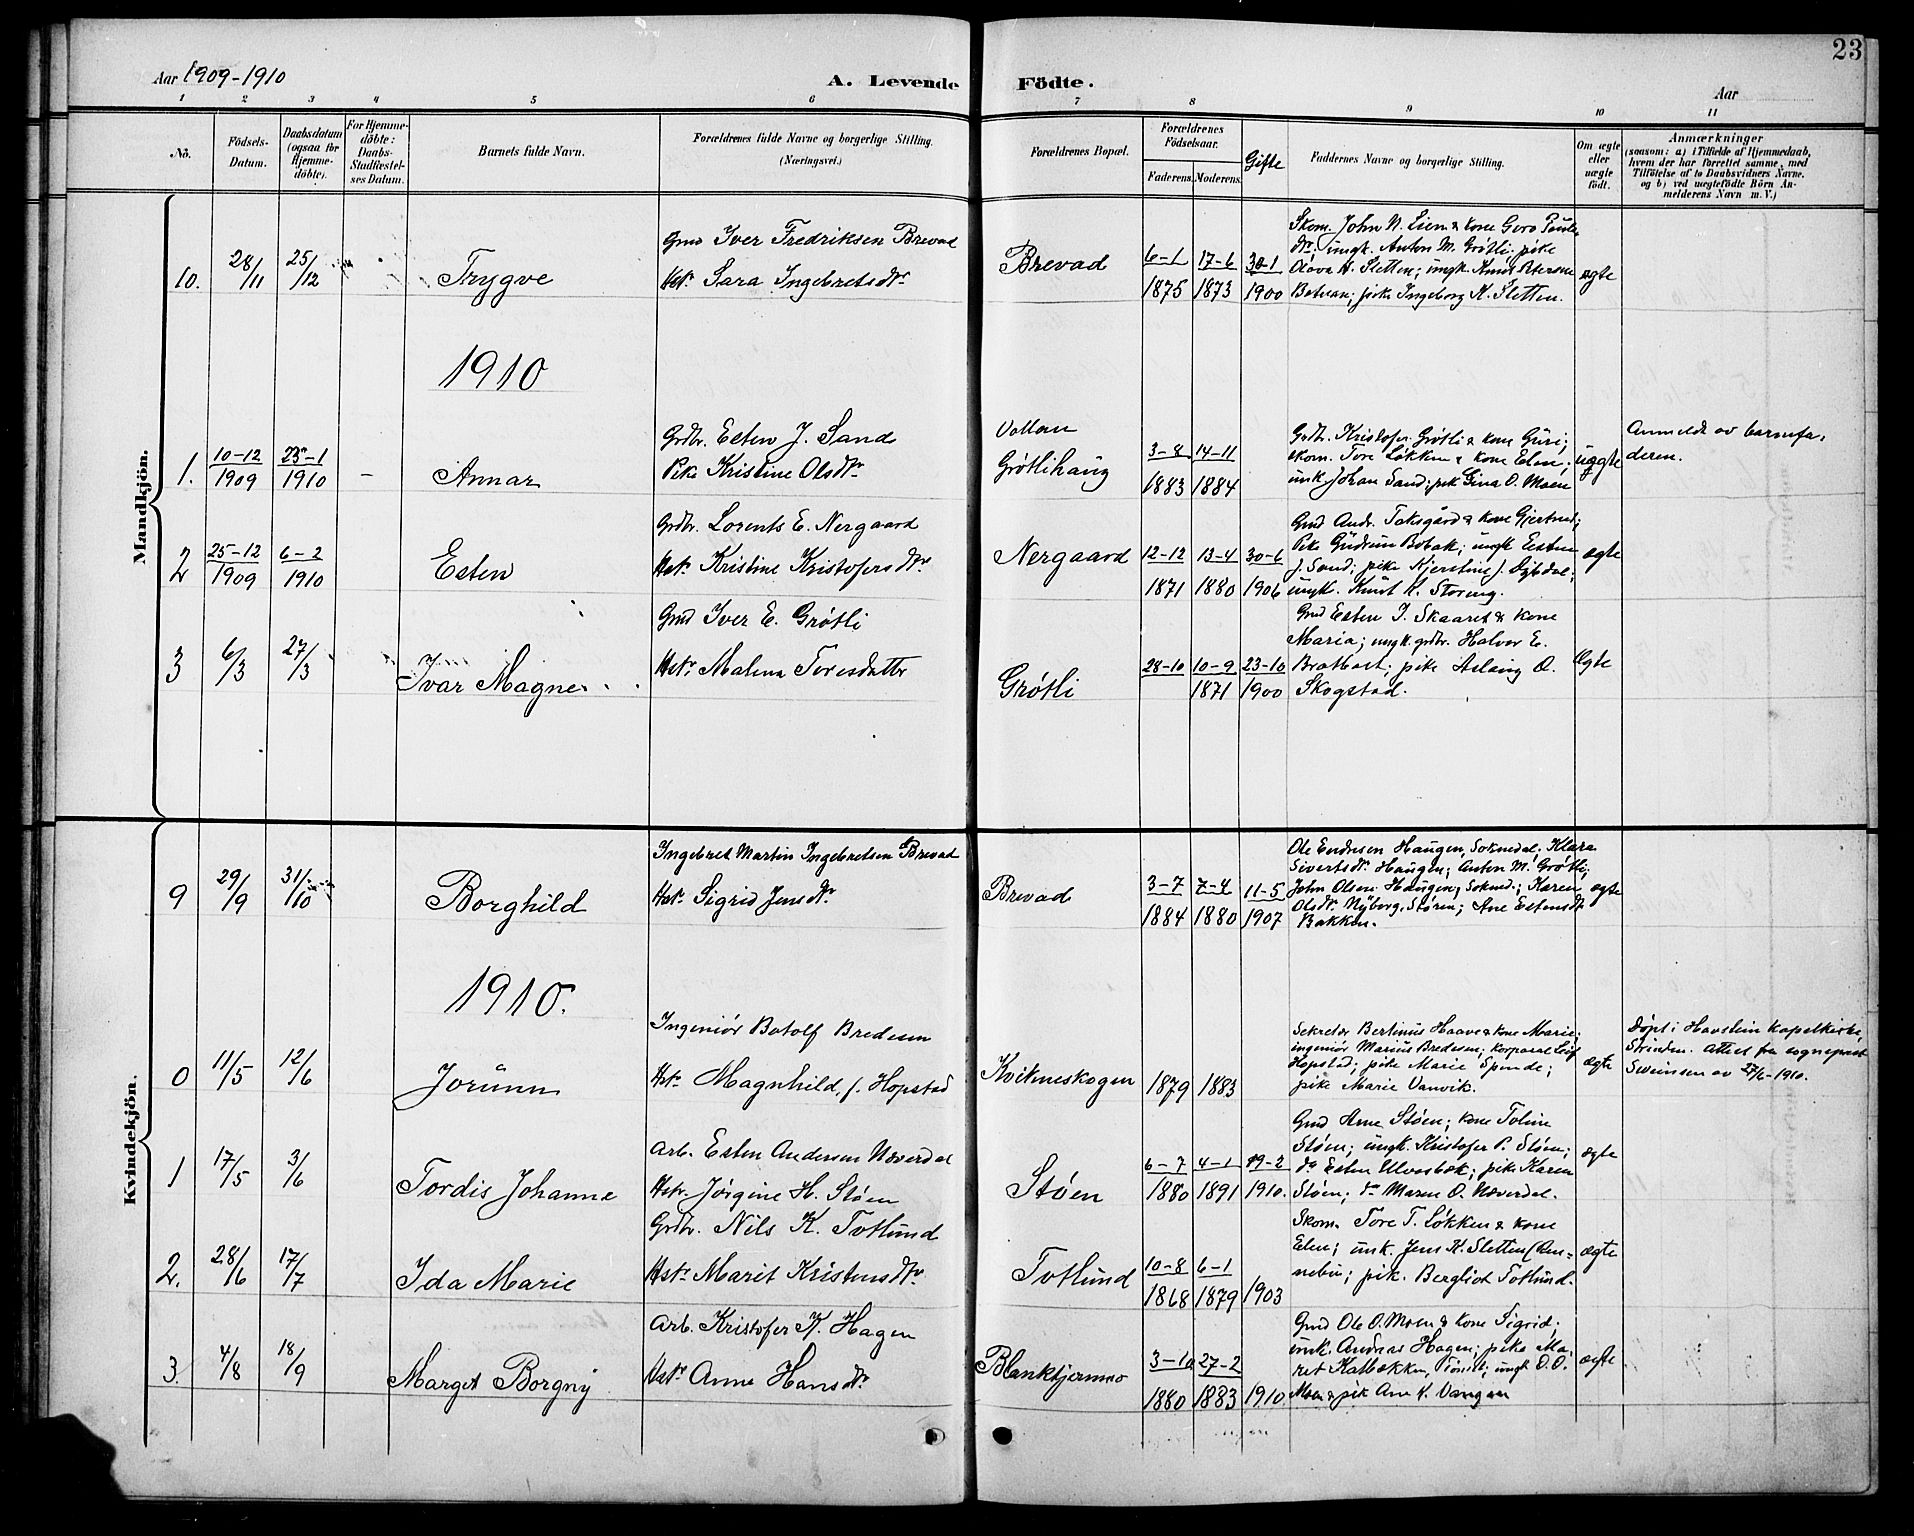 23
Aar 1909-1910
A. Levende Födte.
Aar
1 2 3 4 5 6 7 8 9 10 11
No.
Födsels-
Datum.
Daabsdatum
(ogsaa for
Hjemme-
döbte).
For Hjemme-
döbte:
Daabs-
Stadfestel-
ses Datum.
Barnets fulde Navn.
Forældrenes fulde Navne og borgerlige Stilling.
(Næringsvei.)
Forældrenes Bopæl.
Forældrenes
Födselsaar.
Faderens. Moderens.
Gifte
Faddernes Navne og borgerlige Stilling.
Om ægte
eller
uægte
födt.
Anmærkninger
(saasom: a) i Tilfælde af Hjemmedaab,
hvem der har forrettet samme, med
Tilföielse af to Daabsvidners Navne.
og b) ved uægtefödte Börn An-
melderens Navn m. V.)
Mandkjön.
10. 28/11 25/12 Trygve
Gmd Iver Fredriksen Brevad
Hst. Sara Ingebretsdtr
Brevad
6-1 1875 17-6 1873 30-1 1900
Skom. John N. Lien & kone Gero Pauls
dtr; ungk. Anton M. Grøtli; pike
Olava K. Sletten; ungk. Knut Petersen
Botnan; pike Ingeborg K. Sletten.
ægte
1910
1. 10-12 1909 25-1 1910 - Annar
Grdbr. Esten J. Sand
Pike Kristine Olsdtr
Vollan
Grøtlihaug
3-8 1883 14-11 1884
Grdbr. Kristofer Grøtli & kone Guri;
skom. Tore Løkken & kone Elen;
unk. Johan Sand; pik Gina O. Moen
uægte
Anmeldt av barnefa-
deren.
2 25-12 1909 6-2 1910 Esten
Grdbr. Lorents E. Nergaard
Hst. Kristine Kristofersdtr
Nergaard
12-12 1871 13-4 1880 30-6 1906
Gmd Andr. Toksgård & kone Gjertrud;
Pike Gudrun Bobak; ungk Esten
J. Sand; pike Kjerstine J. Dybdal;
ungk. Knut K. Storeng.
ægte
3 6/3 27/3 Ivar Magne
Gmd Iver E. Grøtli
Hst. Malena Toresdatter
Grøtli
28-10 10-9 1871 23-10 1900
Gmd Esten I. Skaaret & kone
Maria; ungk. grdbr. Halvor E.
Bratbost; pike Aslaug O.
Skogstad.
Ægte
Kvindekjön.
9 29/9 31/10 Borghild
Ingebret Martin Ingebretsen Brevad
Hst. Sigrid Jensdtr
Brevad
3-7 1884 7-4 1880 11-5 1907
Ole Endresen Haugen, Soknedal. Klara
Sivertsdtr Haugen; Anton M. Grøtli;
John Olsen Haugen, Sokned.; Karen
Olsdtr. Nyborg, Støren; Ane Estensdtr
Bakken.
ægte
1910.
0 11/5 12/6 Jorunn
Ingeniør Botolf Bredesen
Hst. Magnhild, f. Hopstad
Kvikneskogen
1879 1883
Sekretær Bertinus Haave & kone Marie;
ingeniør Marius Bredesen; korporal Leif
Hopstad; pike Marie Spende;
pike Marie Vanvik.
ægte
Døpt i Havstein kapelkirke,
Strinden. Attest fra sogneprest
Sveinsen av 27/6-1910.
1 17/5 3/6 Tordis Johanne
Arb. Esten Andersen Næverdal
Hstr. Jørgine H. Støen
Støen
6-7 1880 4-1 1891 19-2 1910.
Gmd Arne Støen; kone Toline
Støen; ungk. Kristofer P. Støen;
do Esten Ulvasbæk; pike Karen
Støen; do Maren O. Næverdal.
ægte
2. 28/6 17/7 Ida Marie
Grdbr. Nils K. Totlund
Hstr Marit Kristensdtr
Totlund
10-8 1868 6-1 1879 1903
Skom. Tore T. Løkken & kone
Elen; unk. Jens K. Sletten (Ren-
nebu; pik. Bergliot Totlund.
ægte
3. 4/8 18/9 Marget Borgny
Arb. Kristofer K. Hagen
Hstr Anne Hansdtr
Blanktjernmo
3-10 1880 27-2 1883 1910
Gmd Ole O. Moen & kone Sigrid;
unk. Andreas Hagen; pike Ma-
ret Kalbækken, Tönset; ungk O. O.
Moen & pik Ane K. Vangen
ægte